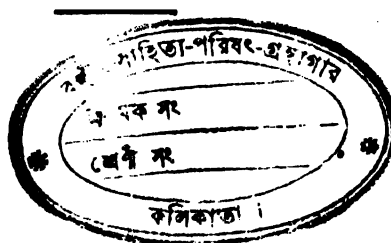 সাহিত্য-পরিষৎ-গ্রন্থাগার
সং
শ্রেণী সং
কলিকাতা।